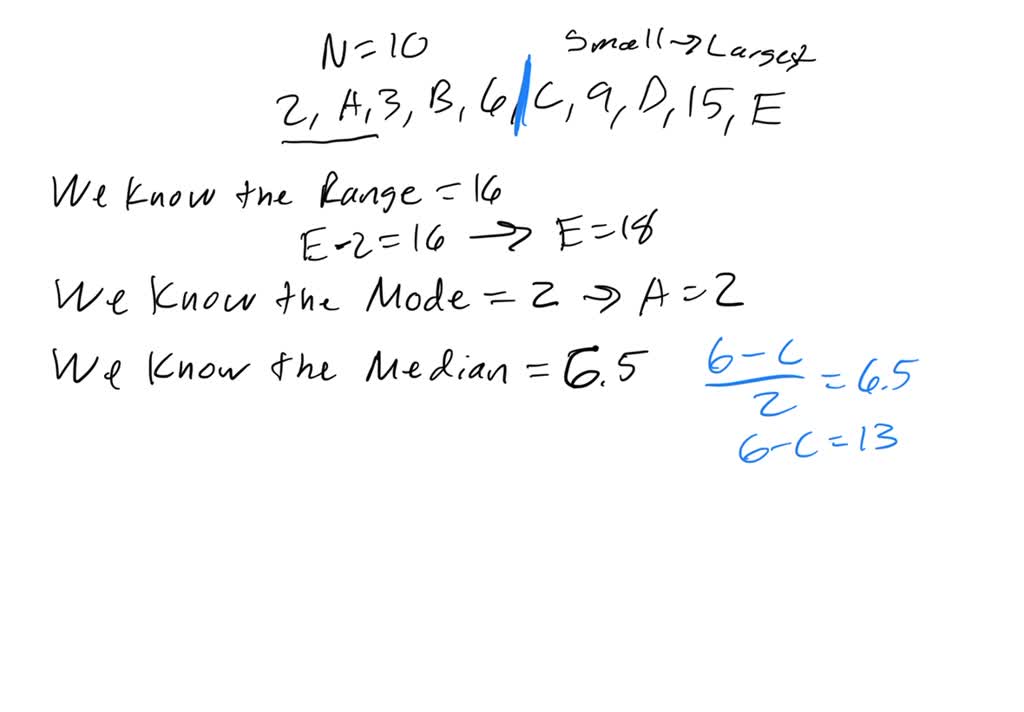 N=10 Small→Largest
2, A, 3, B, 6, C, 9, D, 15, E
We know the Range = 16
E-2=16 → E=18
We know the Mode = 2 ⇒ A=2
We know the Median = 6.5
6-C/2 = 6.5
6-C=13